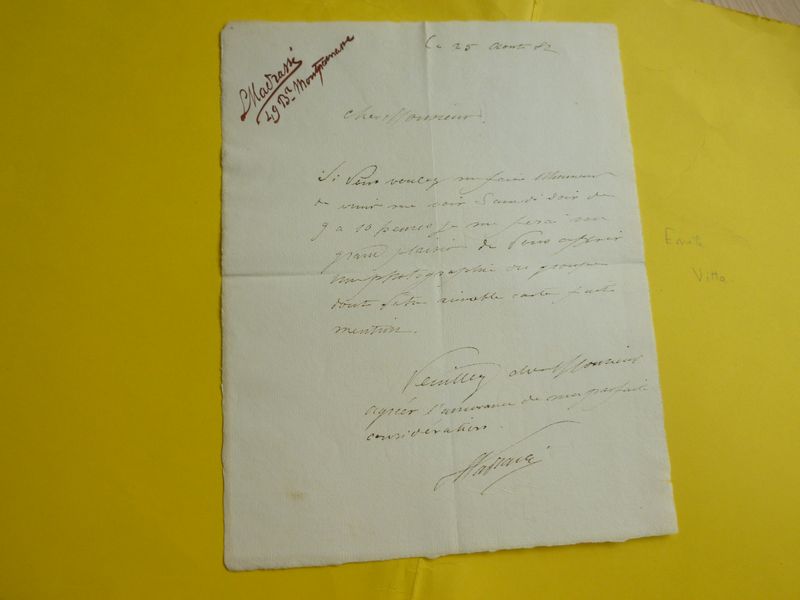 L Madrassi
49 Bd Montparnasse
Le 25 Août 82
Cher Monsieur.
Si Vous voulez me faire l'honneur
de venir me voir Samedi soir de
9 à 10 heures je me ferai un
grand plaisir de Vous offrir
une photographie du groupe
dont Votre aimable carte fait
mention.
Veuillez cher Monsieur
agréer l'assurance de ma parfaite
considération.
Madrassi
Vitta